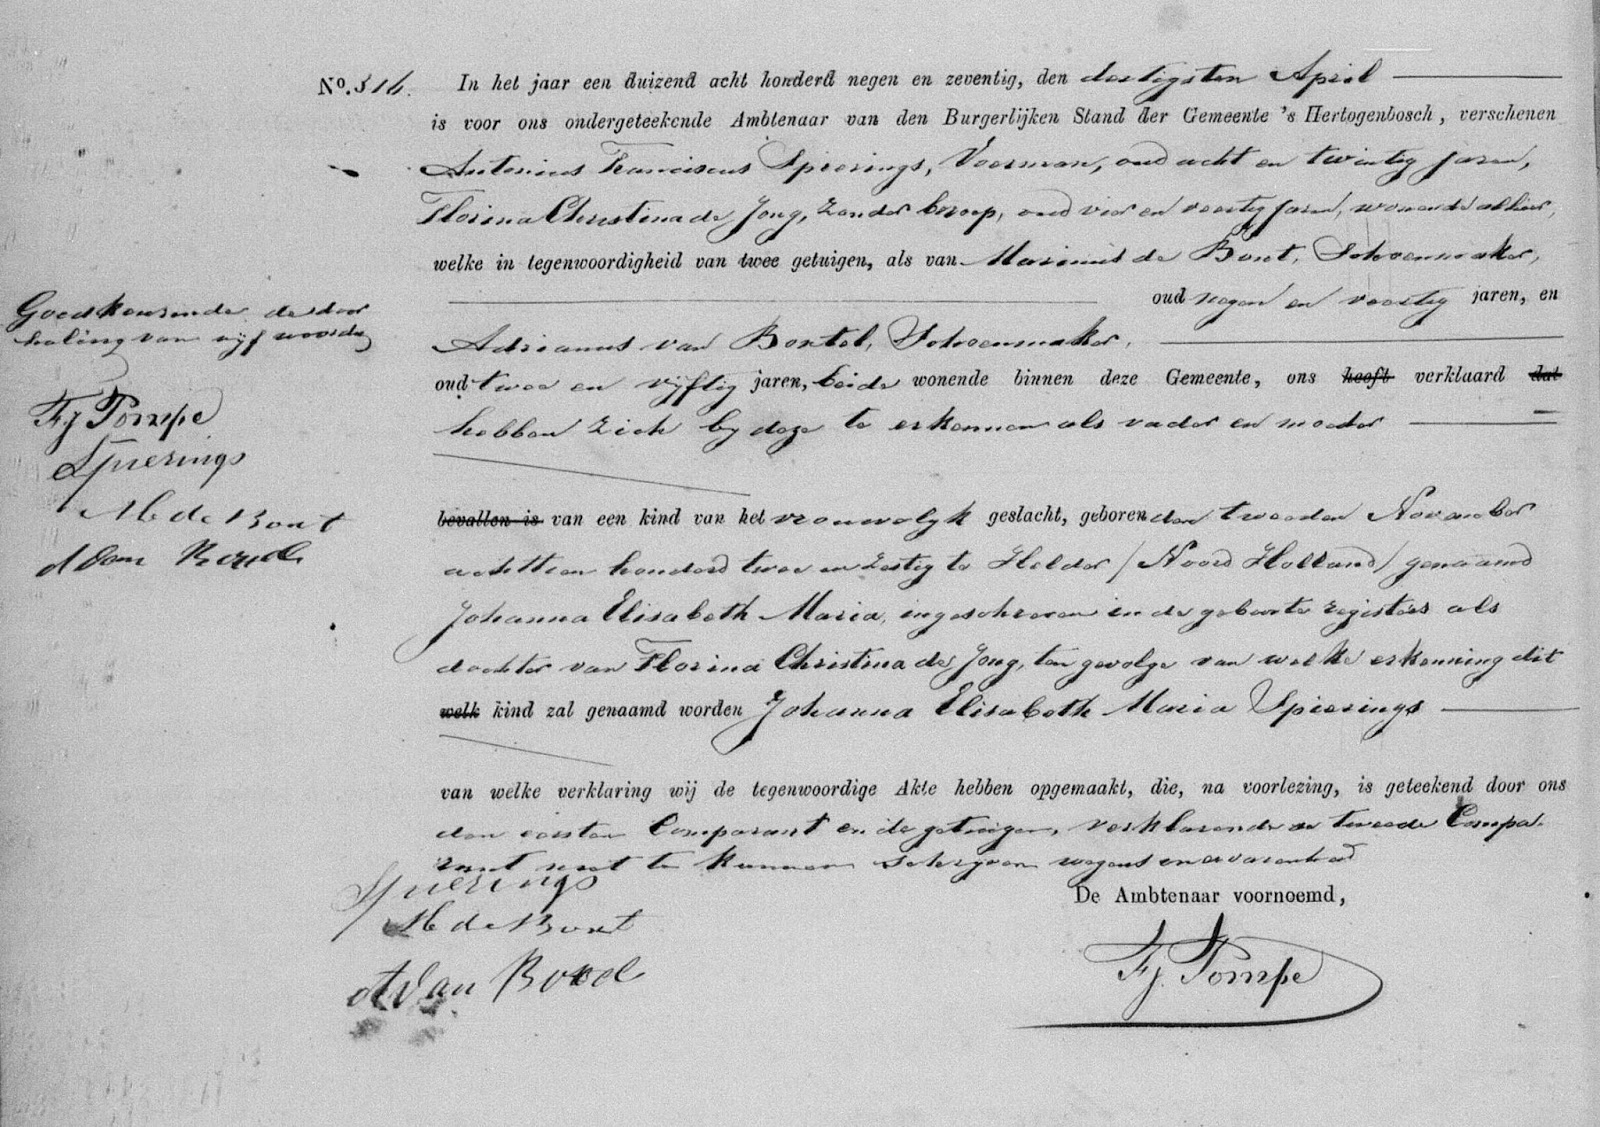 No. 316. In het jaar een duizend acht honderd negen en zeventig, den dertigsten April
is voor ons ondergeteekende Ambtenaar van den Burgerlijken Stand der Gemeente 's Hertogenbosch, verschenen
Antonius Franciscus Spierings, Voerman, oud acht en twintig jaren,
Florina Christina de Jong, zonder beroep, oud vier en veertig jaren, wonende alhier,
welke in tegenwoordigheid van twee getuigen, als van Marinus de Bont, Schoenmaker,
oud negen en veertig jaren, en
Adrianus van Boxtel, Schoenmaker,
oud twee en vijftig jaren, beide wonende binnen deze Gemeente, ons heeft verklaard dat
hebben zich by deze te erkennen als vader en moeder
bevallen is van een kind van het vrouwelyk geslacht, geboren den tweeden November
achttien honderd twee en zestig te Helder / Noord Holland / genaamd
Johanna Elisabeth Maria, ingeschreven in de geboorte registers als
dochter van Florina Christina de Jong, ten gevolge van welke erkenning dit
welk kind zal genaamd worden Johanna Elisabeth Maria Spierings
van welke verklaring wij de tegenwoordige Akte hebben opgemaakt, die, na voorlezing, is geteekend door ons
den eersten Comparant en de getuigen, verklarende de tweede Compa-
rant niet te kunnen schryven wegens onervarenheid
De Ambtenaar voornoemd,
Spierings
M de Bont
A Van Boxtel
Fj. Pompe
Goedkeurende de door
haling van vijf woorden
Fj Pompe
Spierings
M de Bont
A Van Boxtel